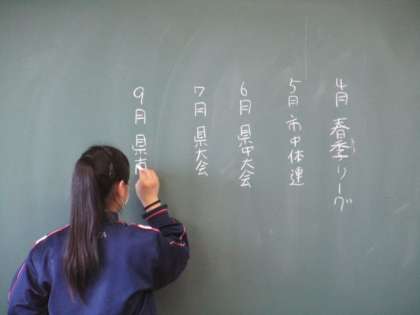 4月 春季リーグ
5月 市中体連
6月 県中大会
7月 県大会
9月 県南